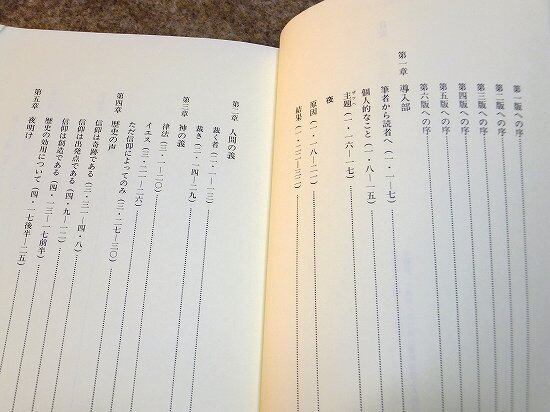 第一版への序
第二版への序
第三版への序
第四版への序
第五版への序
第六版への序
第一章 導入部
筆者から読者へ（一・一—七）
個人的なこと（一・八—一五）
主題（一・一六—一七）
夜
原因（一・一八—二一）
結果（一・二二—三二）
第二章 人間の義
裁く者（二・一—一三）
裁き（二・一四—二九）
第三章 神の義
律法
イエス（三・二一—二六）
ただ信仰によってのみ（三・二七—三〇）
第四章 歴史の声
信仰は奇跡である（三・三一—四・八）
信仰は出発点である（四・九—一二）
信仰は創造である（四・一三—一七前半）
歴史の効用について（四・一七後半—二五）
第五章 夜明け